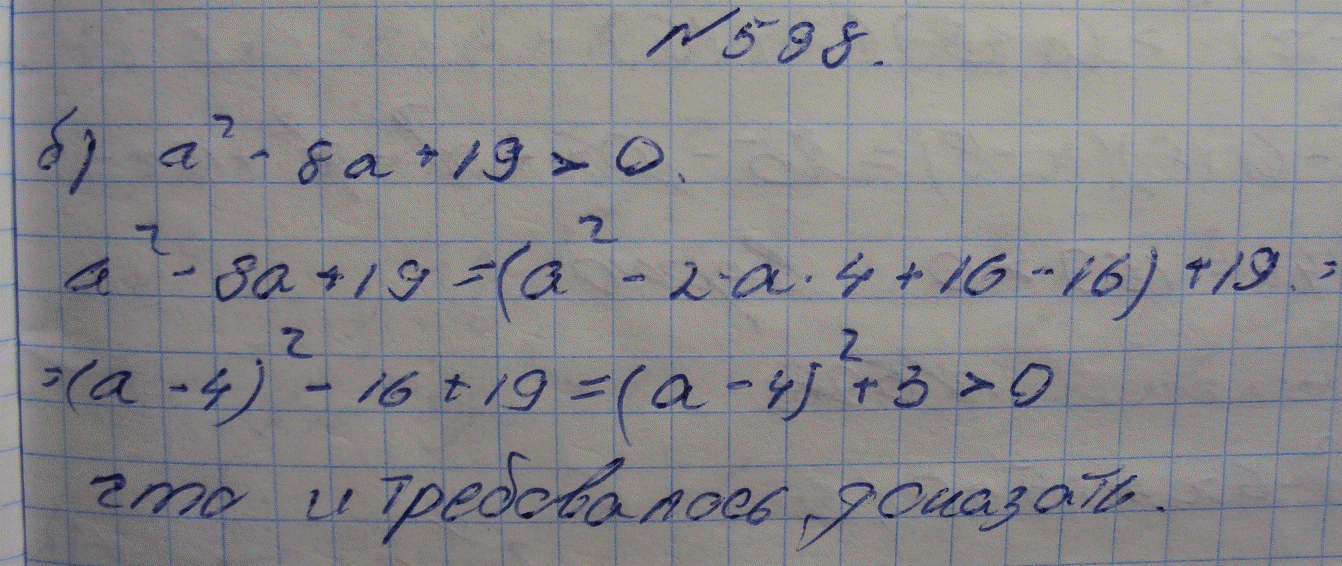 №598.
б) a² - 8a + 19 > 0.
a² - 8a + 19 = (a² - 2·a·4 + 16 - 16) + 19 =
= (a - 4)² - 16 + 19 = (a - 4)² + 3 > 0
что и требовалось доказать.